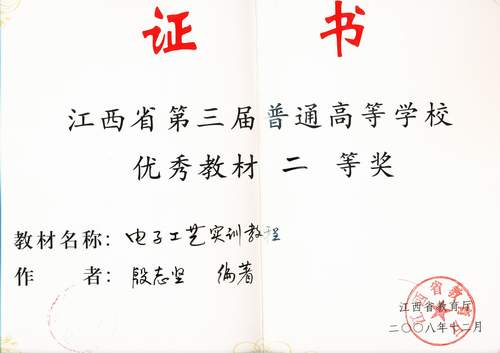 证 书
江西省第三届普通高等学校
优秀教材 二 等奖
教材名称: 电子工艺实训教程
作 者: 殷志坚 编著
江西省教育厅
二〇〇八年十二月